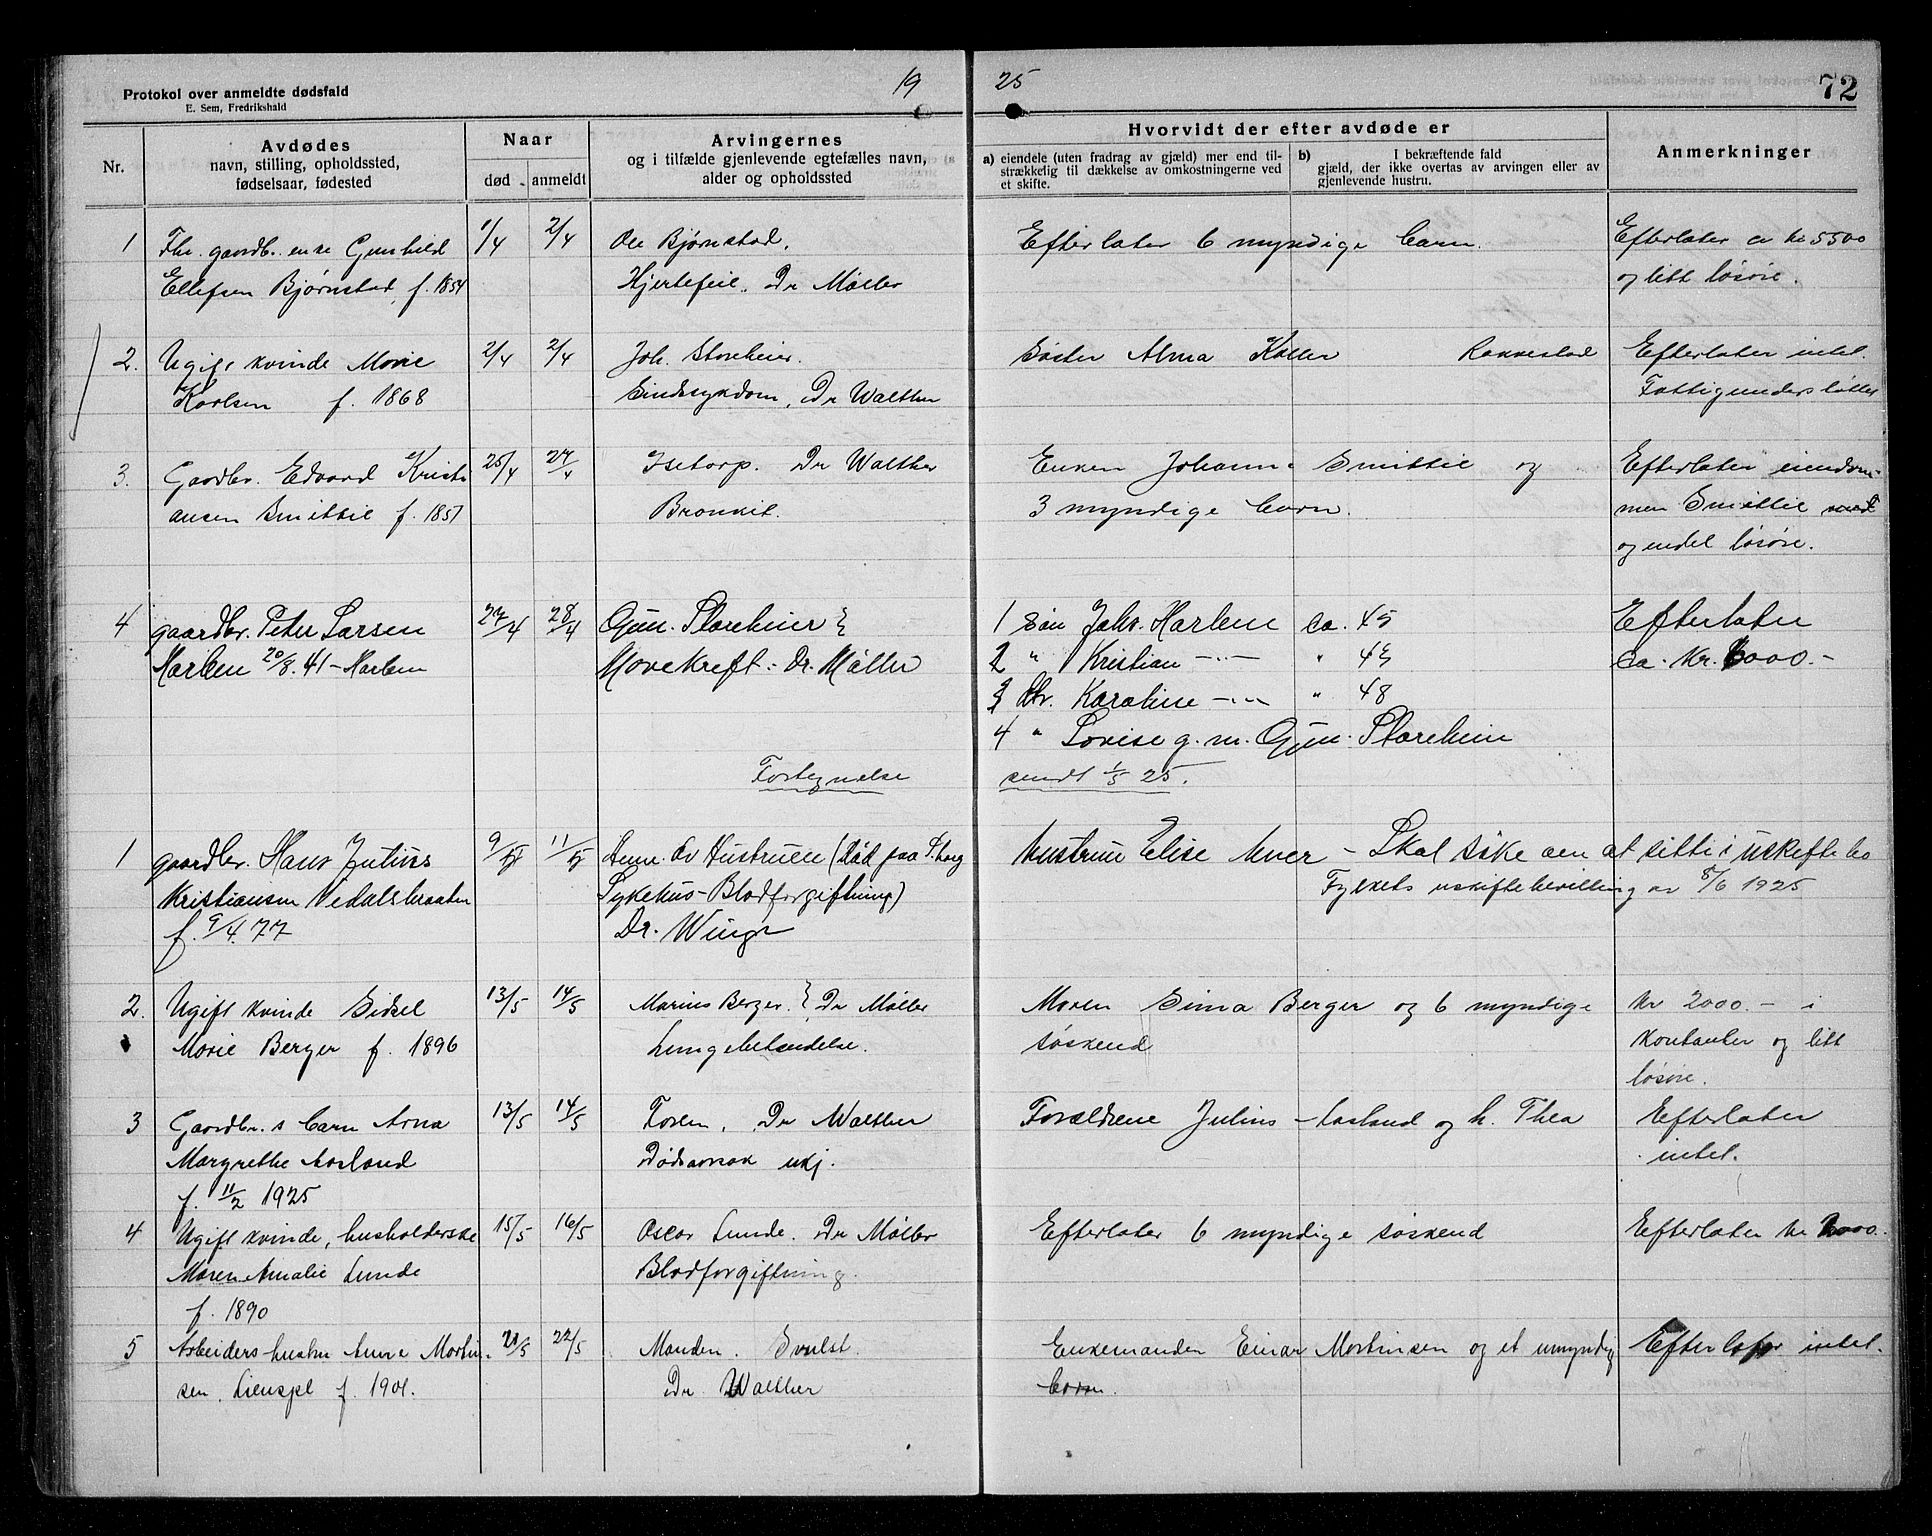 Protokol over anmeldte dødsfald
E. Sem, Fredrikshald
19 25
72
Nr.
Avdødes
navn, stilling, opholdssted,
fødselsaar, fødested
Naar
død
anmeldt
Arvingernes
og i tilfælde gjenlevende egtefælles navn,
alder og opholdssted
Hvorvidt der efter avdøde er
a) eiendele (uten fradrag av gjæld) mer end til-
strækkelig til dækkelse av omkostningerne ved
et skifte.
b) I bekræftende fald
gjæld, der ikke overtas av arvingen eller av
gjenlevende hustru.
Anmerkninger
1 Fhv. gaardbr. enke Gunhild 1/4 2/4 Ole Bjørnstad. Efterlater 6 myndige barn. Efterlater ca kr 5500
Ellefsen Bjørnstad, f. 1854 Hjertefeil. Dr Møller og litt løsøre.
2. Ugift kvinde Marie 2/4 2/4 Joh. Storeheier. Søster Alma Koller Rakkestad Efterlater intet.
Karlsen f. 1868 Sindssykdom, Dr Walther Fattigunderstøttet
3. Gaardbr. Edvard Kristi 25/4 27/4 Isetorp. Dr Walther Enken Johanne Smittil og Efterlater eiendom-
ansen Smittil f. 1857 Bronkit. 3 myndige barn. men Smittil
og endel løsøre.
4 gaardbr. Peter Larsen 27/4 28/4 Gun. Storeheier } 1 Søn Johs. Harlem ca. 45 Efterlater
Harlem 20/8. 41 - Harlem Mavekreft: Dr. Møller 2 " Kristian -"- " 43 ca. Kr. 6000.-
3 Dtr. Karoline -"- " 48
4 " Lovise g. m. Gun. Storeheier
Fortegnelse sendt 1/5 25.
1 gaardbr. Hans Julius 9/5 11/5 Henr. av Hustruen (Død paa S.borg Hustrue Elise - Skal søke om at sitte i uskiftebo
Kristiansen Vedalsbraaten Sykehus - Blodforgiftning) Fylkets uskiftebevilling av 8/6 1925
f. 9/4. 77 Dr. Winge
2. Ugift kvinde Sidsel 13/5 14/5 Marius Berger. } Dr Møller Moren Sina Berger og 6 myndige Kr 2000.- i
Marie Berger f. 1896 Lungebetændelse. søskend kontanter og litt
løsøre.
3 Gaardbr.s barn Arna 13/5 14/5 Faren, Dr Walther Forældrene Julius Aasland og h. Thea Efterlater
Margrethe Aasland Dødsarsak ukj. intet.
f. 11/2 1925
4 Ugift kvinde, husholderske 15/5 16/5 Oscar Lunde. Dr Møller Efterlater 6 myndige søskend Efterlater kr 2000.
Maren Amalie Lunde Blodforgiftning.
f. 1890
5 Arbeiders hustru Anne Martin- 21/5 22/5 Manden. Svulst. Enkemanden Einar Martinsen og et umyndig Efterlater intet.
sen, f. 1901. Dr Walther barn.